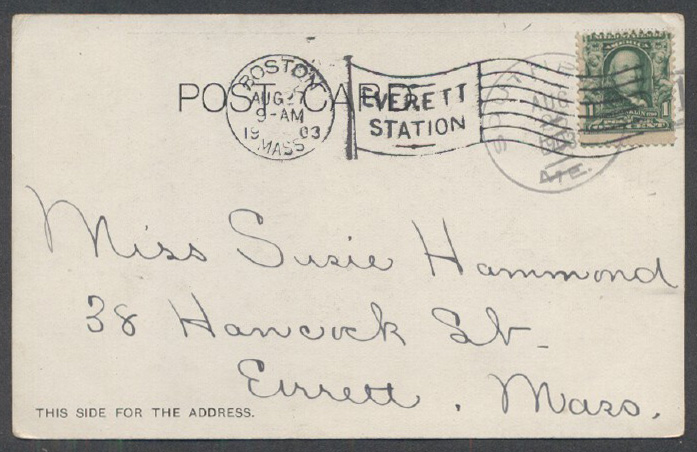 BOSTON
AUG 27
9-AM
1903
MASS
EVERETT
STATION
POST CARD
SOUTH
1
Miss Susie Hammond
38 Hancock St-
Evrett, Mass.
THIS SIDE FOR THE ADDRESS.